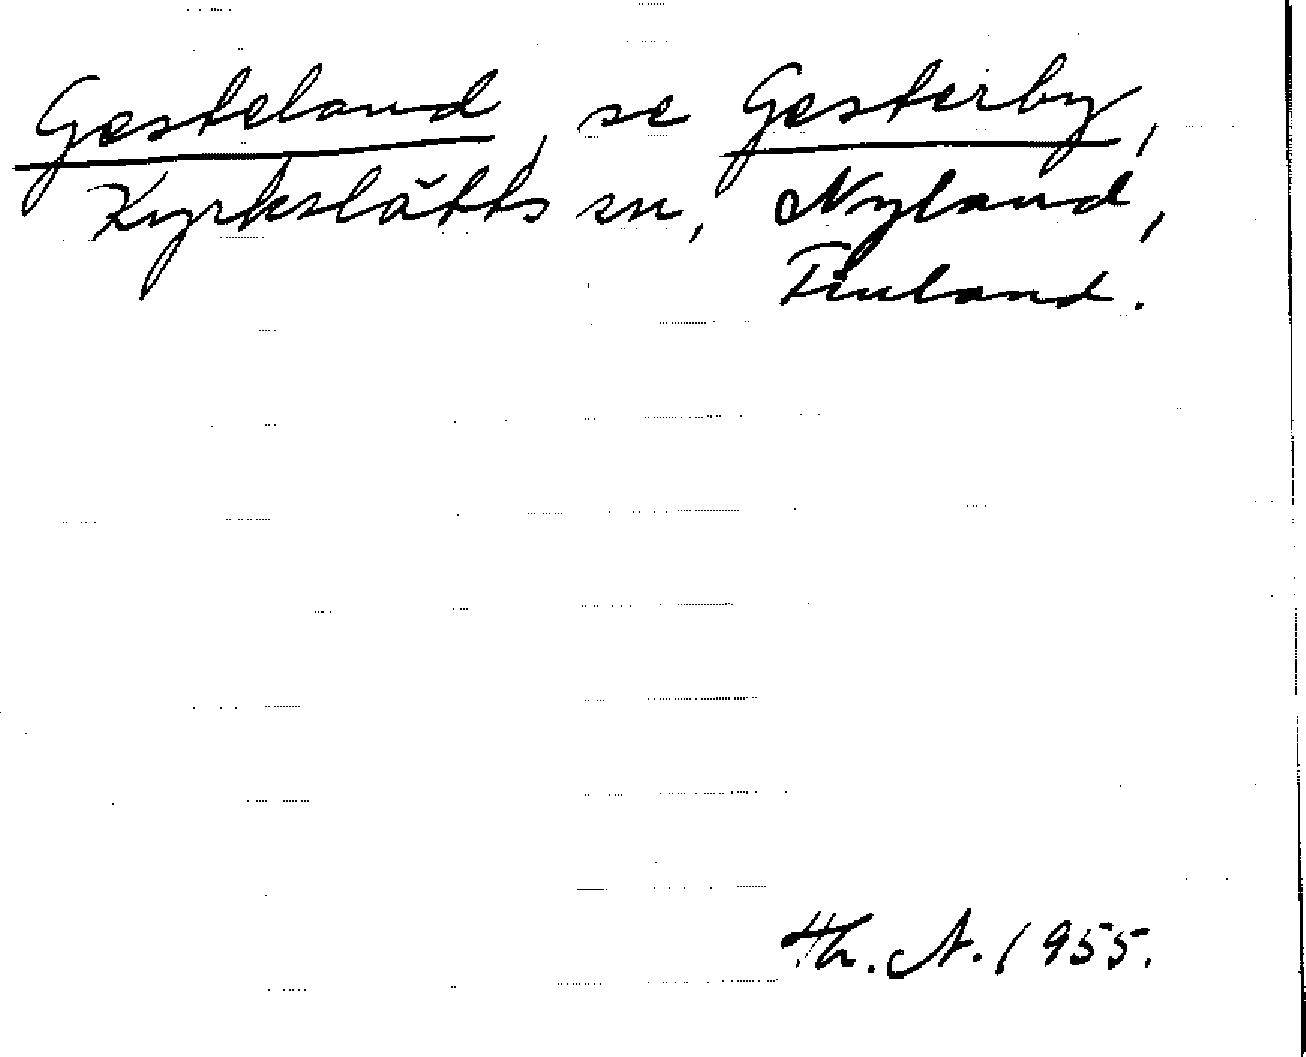 Gesteland, se Gesterby,
Kyrkslätts sn, Nyland,
Finland.
Th. A. 1955.